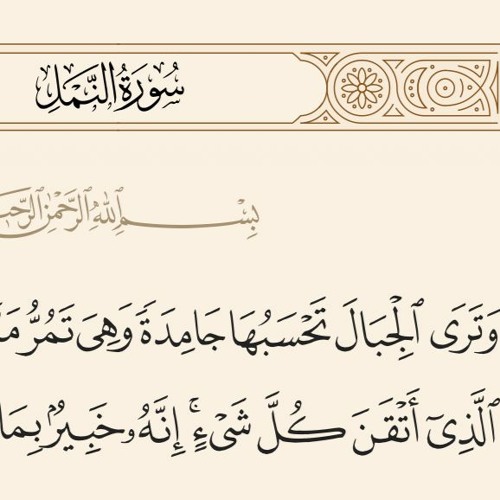 سُورَةُ النَّمْلِ
بِسْمِ ٱللَّهِ ٱلرَّحْمَٰنِ
وَتَرَى ٱلْجِبَالَ تَحْسَبُهَا جَامِدَةً وَهِىَ تَمُرُّ
ٱلَّذِىٓ أَتْقَنَ كُلَّ شَىْءٍ ۚ إِنَّهُۥ خَبِيرٌۢ بِمَا